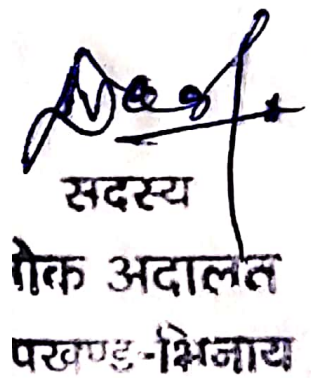 सदस्य
ोक अदालत
पखण्ड-भिनाय